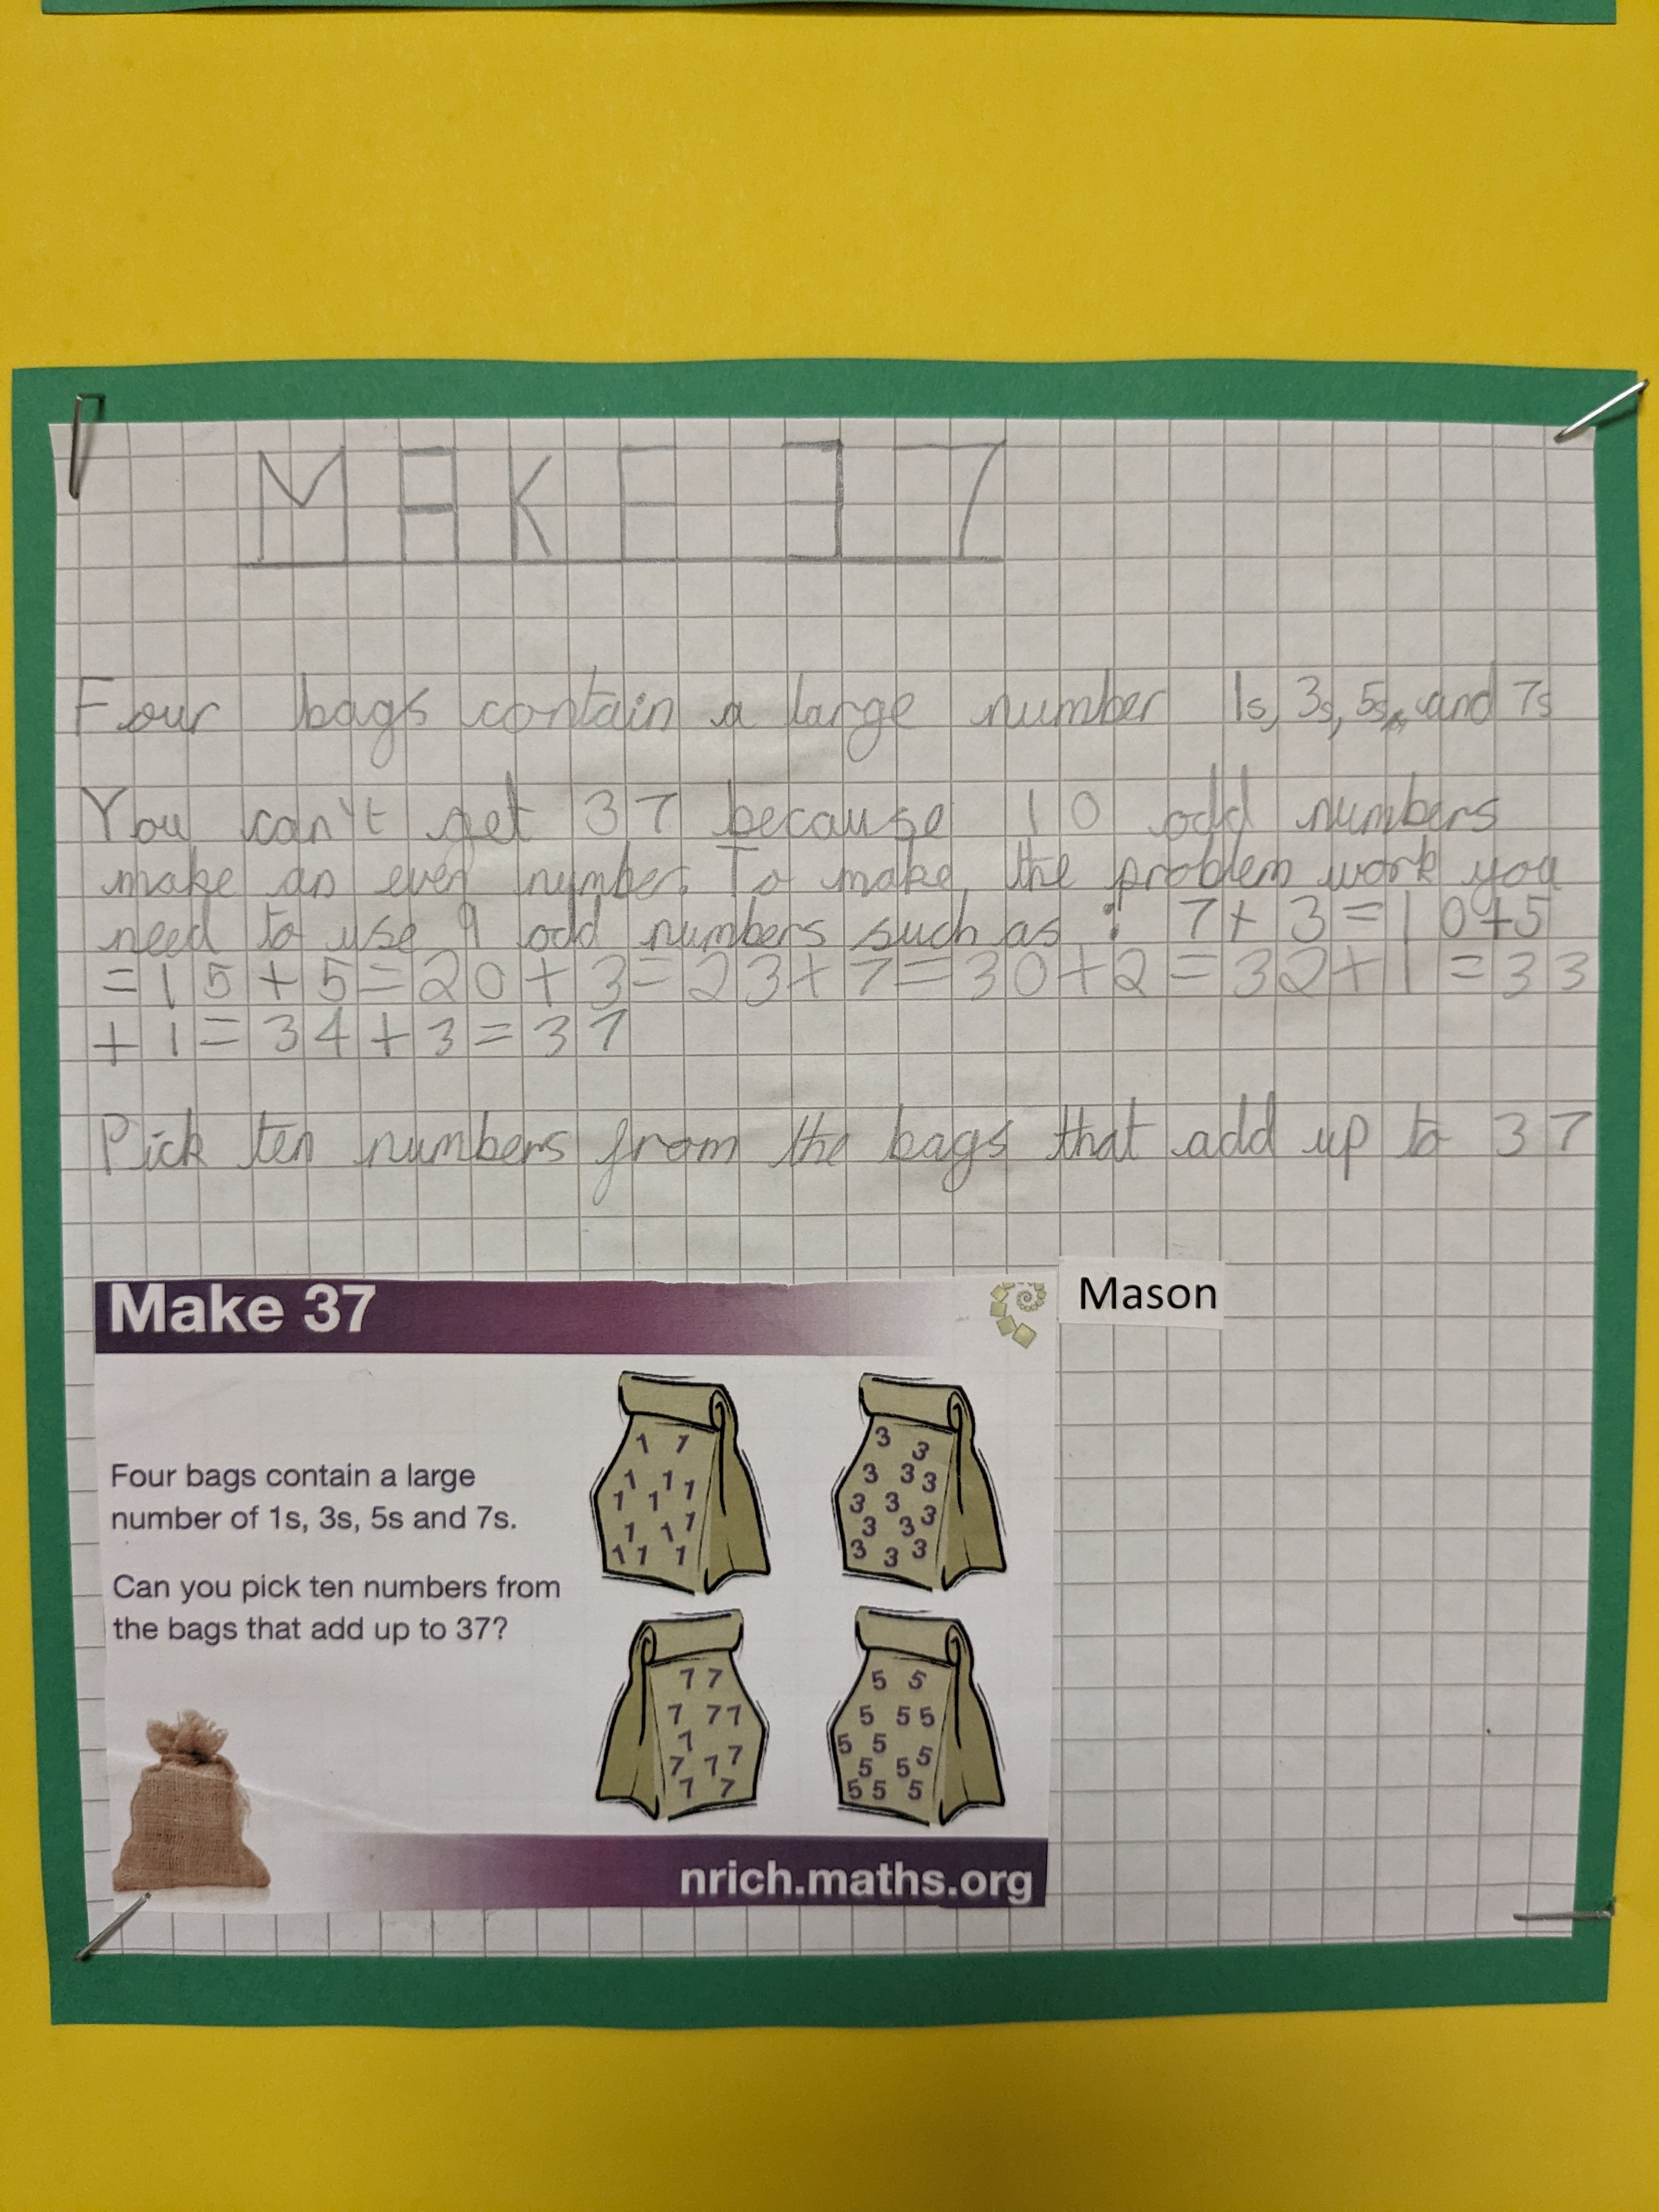 MAKE 37
Four bags contain a large number 1s, 3s, 5s, and 7s
You can't get 37 because 10 odd numbers
make an even number. To make, the problem work you
need to use 9 odd numbers such as : 7 + 3 = 10 + 5
= 15 + 5 = 20 + 3 = 23 + 7 = 30 + 2 = 32 + 1 = 33
+ 1 = 34 + 3 = 37
Pick ten numbers from the bags that add up to 37
Make 37
Mason
Four bags contain a large
number of 1s, 3s, 5s and 7s.
Can you pick ten numbers from
the bags that add up to 37?
1 1
1 1 1
1 1 1
1 1
1 1 1
3 3
3 3 3
3 3 3
3 3
3 3 3
7 7
7 7 7
7
7 7 7
7 7
5 5
5 5 5
5 5
5 5 5
5 5 5
nrich.maths.org